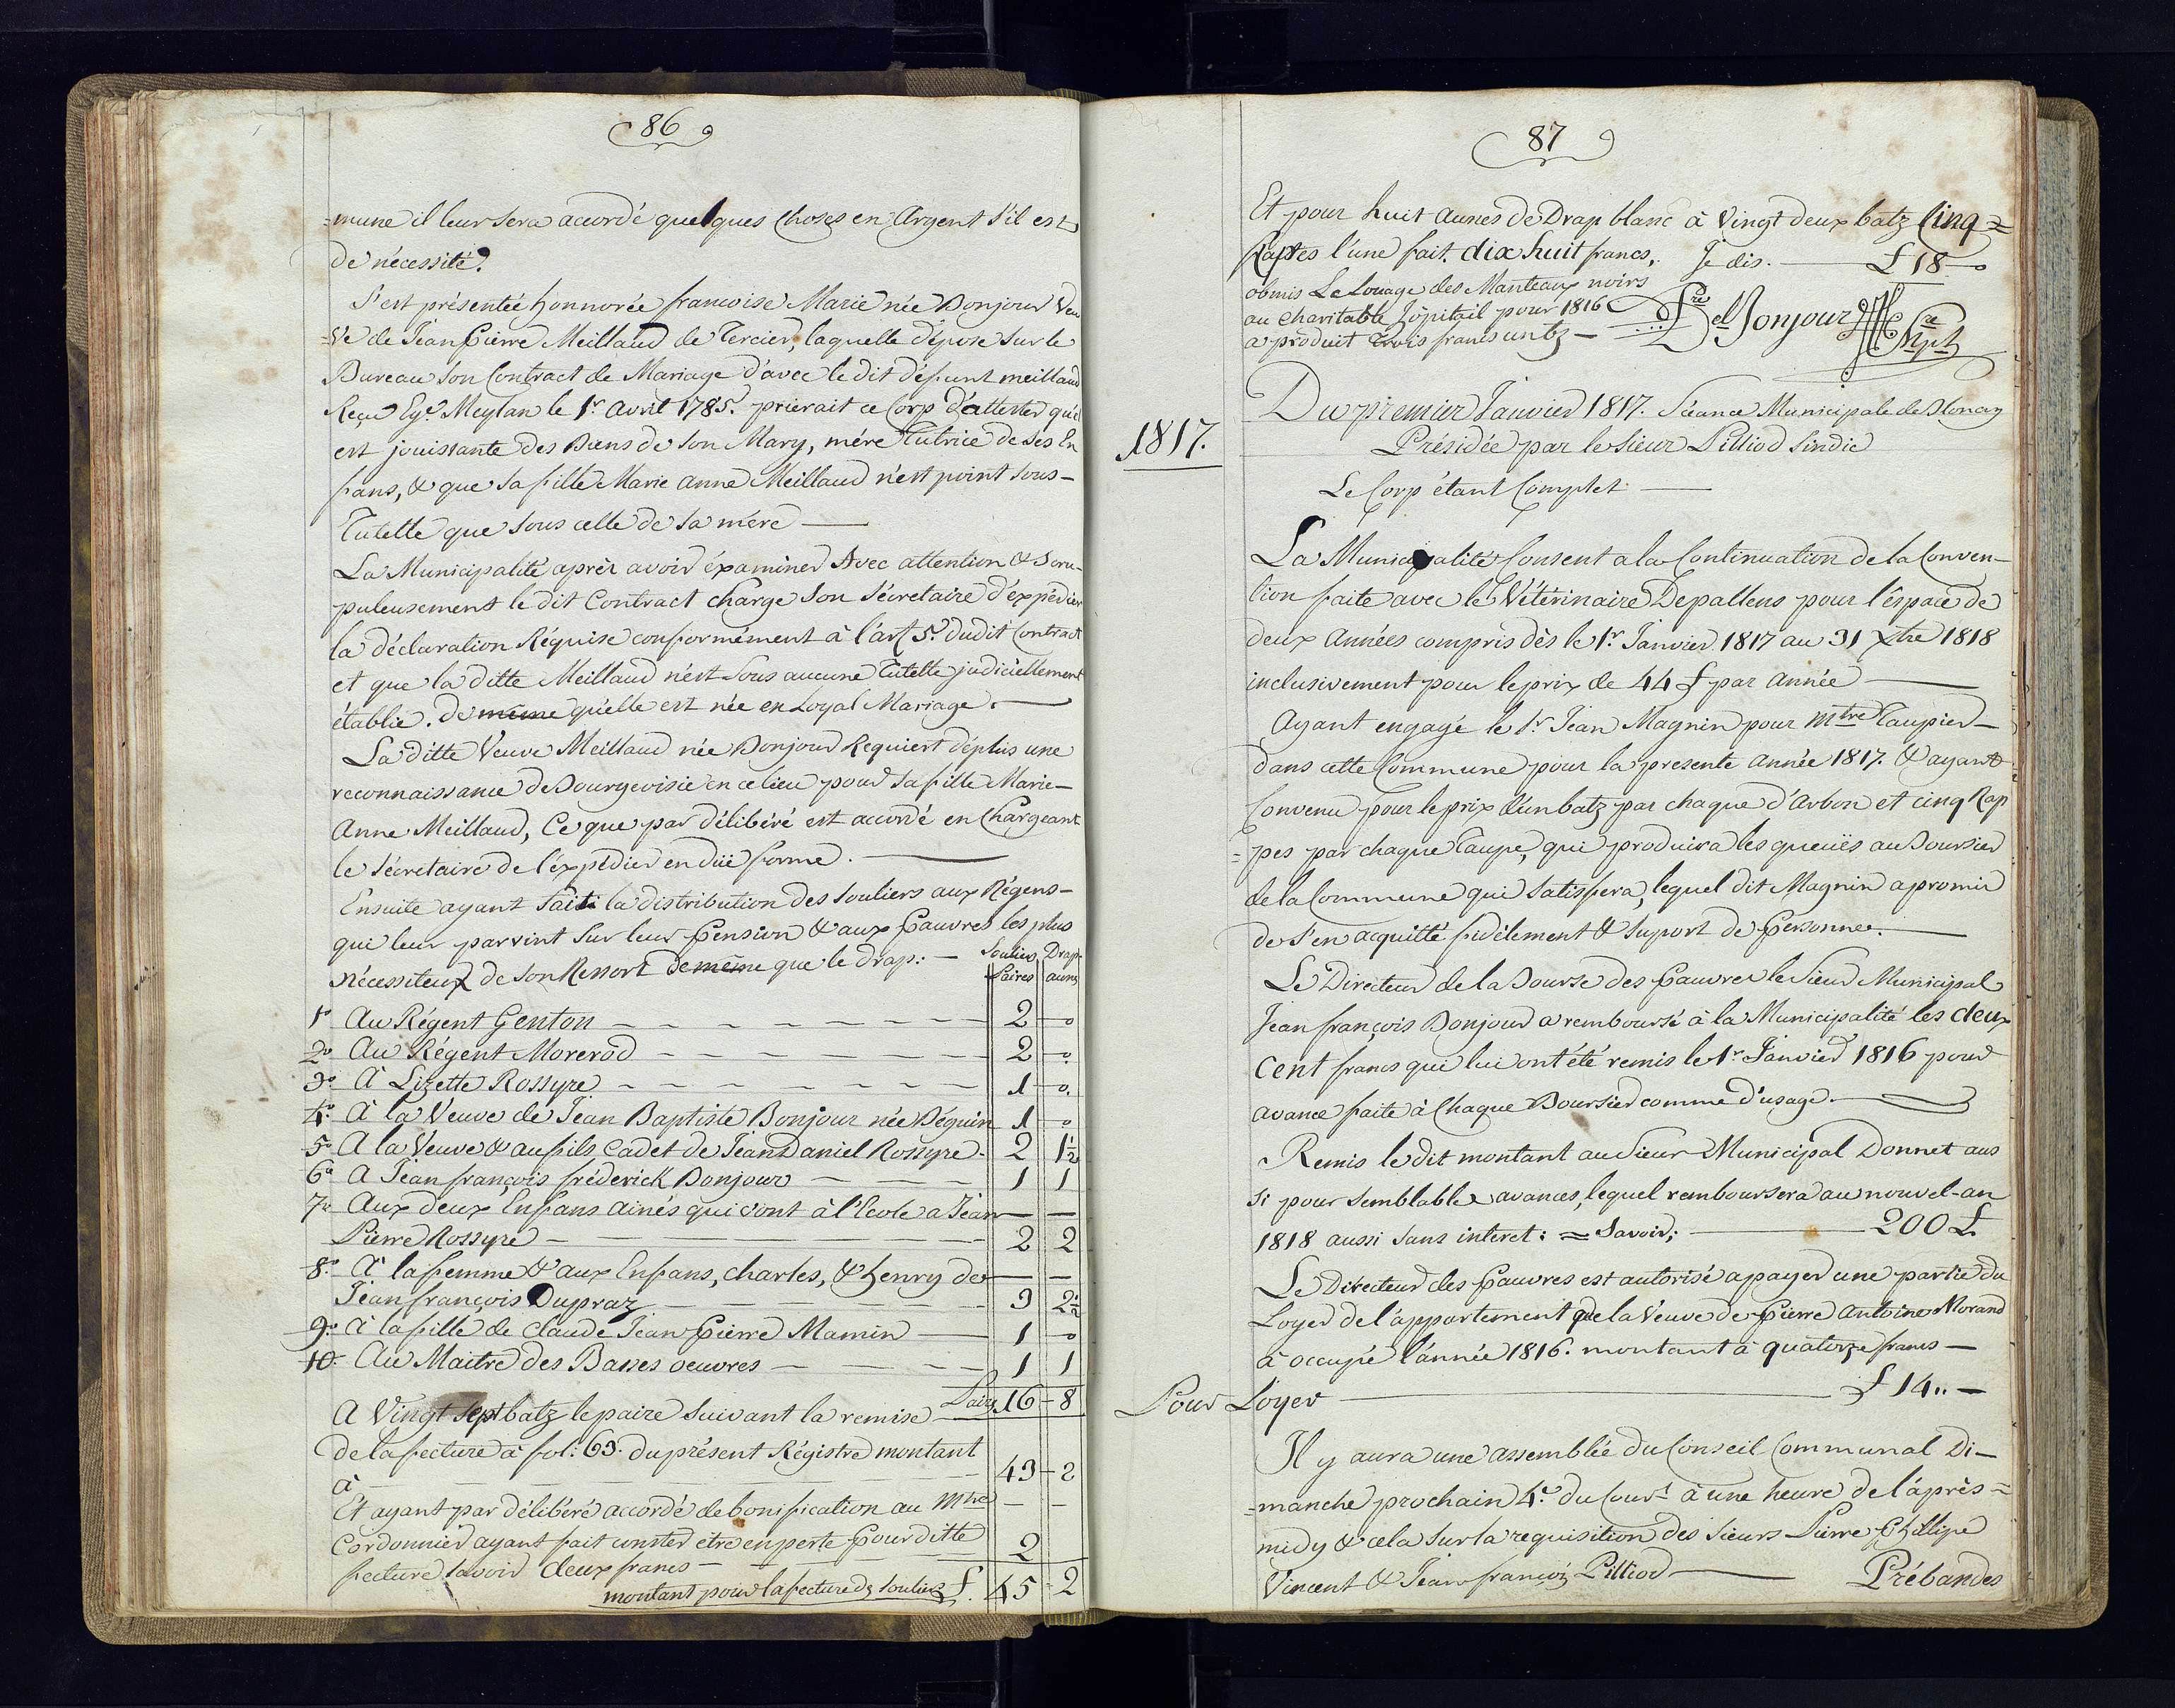 86
=mune il leur sera accordé quelques choses en Argent s'il est
de nécessité.
S'est présentée honnorée francoise Marie née Bonjour Veu
=ve de Jean Pierre Meillaud de Tercier, laquelle dépose sur le
Bureau son Contract de Mariage d'avec le dit défunt meillaud
Reçu Eg.e Meylan le 1.r avril 1785. prierait ce Corp d'attester quel
est jouissante des Biens de son Mary, mére Tutrice de ses En
fans, & que sa fille Marie anne Meillaud n'est point sous-
Tutelle que sous celle de sa mére
La Municipalité aprèr avoir éxaminer Avec attention & Scru-
puleusement le dit Contract charge Son Sécretaire d'éxpédier
la déclaration Réquise conformément à l'art 5.e dudit Contract
et que la ditte Meillaud n'est Sous aucune Tutelle judiciellement
établie. de même qu'elle est née en Loyal Mariage.
La ditte Veuve Meillaud née Bonjour Requiert déplus une
reconnaissance de Bourgeoisie en ce lieu pour Sa fille Marie-
Anne Meillaud, Ce que par délibéré est accordé en Chargeant
le sécretaire de l'éxpédier en düe forme.
Ensuite ayant faitt la distribution des souliers aux Régens-
qui leur parvint Sur leur Pension & aux Pauvres les plus
nécessiteux de son Ressort de même que le drap: - Souliers Drap
Paires aunes
1.o Au Régent Genton 2 0
2.o Au Régent Morerod 2 0
3.o A Lizette Rossyre 1 0
4.o A la Veuve de Jean Baptiste Bonjour née Béguin 1 0
5.o A la Veuve & au fils Cadet de Jean Daniel Rossyre. 2 1½
6.o A Jean françois fréderick Bonjour 1 1
7.o Aux deux Enfans ainés qui vont à l'Ecole a Jean
Pierre Rossyre 2 2
8.o A la femme & aux Enfans, charles, & henry de
Jean françois Dupraz 3 2½
9.o A la fille de claude Jean Pierre Mamin 1 0
10. Au Maitre des Basses oeuvres 1 1
Paires 16 - 8
A Vingt Sept batz le paire Suivant la remise
de la fecture à fol: 63. du présent Régistre montant
à 43 - 2
Et ayant par délibéré accordé de bonification au Mtre
Cordonnier ayant fait conster etre en perte Pour ditte
fecture savoir deux francs 2
montant pour la fecture des souliers £. 45 2
87
Et pour huit aunes de Drap blanc à Vingt deux batz Cinq=
Raptes l'une fait. dix huit francs, Je dis. £ 18 0
obmis Le Louage des Manteaux noirs
au charitable hôpitail pour 1816
a produit trois francs un tz -
Bonjour
1817.
Du premier Janvier 1817. Séance Municipale de Blonay
Présidée par le Sieur Pilliod Sindic
Le Corp étant Complet
La Municipalité Consent a la Continuation de la Conven-
tion faite avec le Vétérinaire Depallens pour l'éspace de
deux années compris dès le 1.r Janvier 1817 au 31 Xbre 1818
inclusivement pour le prix de 44 £ par année
Ayant engagé le S.r Jean Magnin pour mtre Taupier-
dans cette Commune pour la presente année 1817. & ayant
Convenu pour le prix d'un batz par chaque d'arbon et cinq Rap
=pes par chaque Taupe, qui produira les queües au Boursier
de la Commune qui Satisfera, lequel dit Magnin a promis
de s'en acquitté fidélement & suport de Personne.
Le Directeur de la Bourse des Pauvres le Sieur Municipal
Jean françois Bonjour a remboursé à la Municipalité les deux
cent francs qui lui ont été remis le 1.r Janvier 1816 pour
avance faite à Chaque Boursier comme d'usage.
Remis le dit montant au Sieur Municipal Donnet aus
si pour semblable avances, lequel remboursera au nouvel-an
1818 aussi Sans interet: = Savoir; 200 £.
Le Directeur des Pauvres est autorisé a payer une partie du
Loyer de l'appartement que la Veuve de Pierre Antoine Morand
à occupée l'année 1816. montant à quatorze francs -
Pour Loyer £ 14.. -
Il y aura une assemblée du Conseil Communal Di-
=manche prochain 4.e du Cour.t à une heure de l'après=
midy & cela sur la requisition des Sieurs Pierre Phillipe
Vincent & Jean françois Pilliod Prébandes